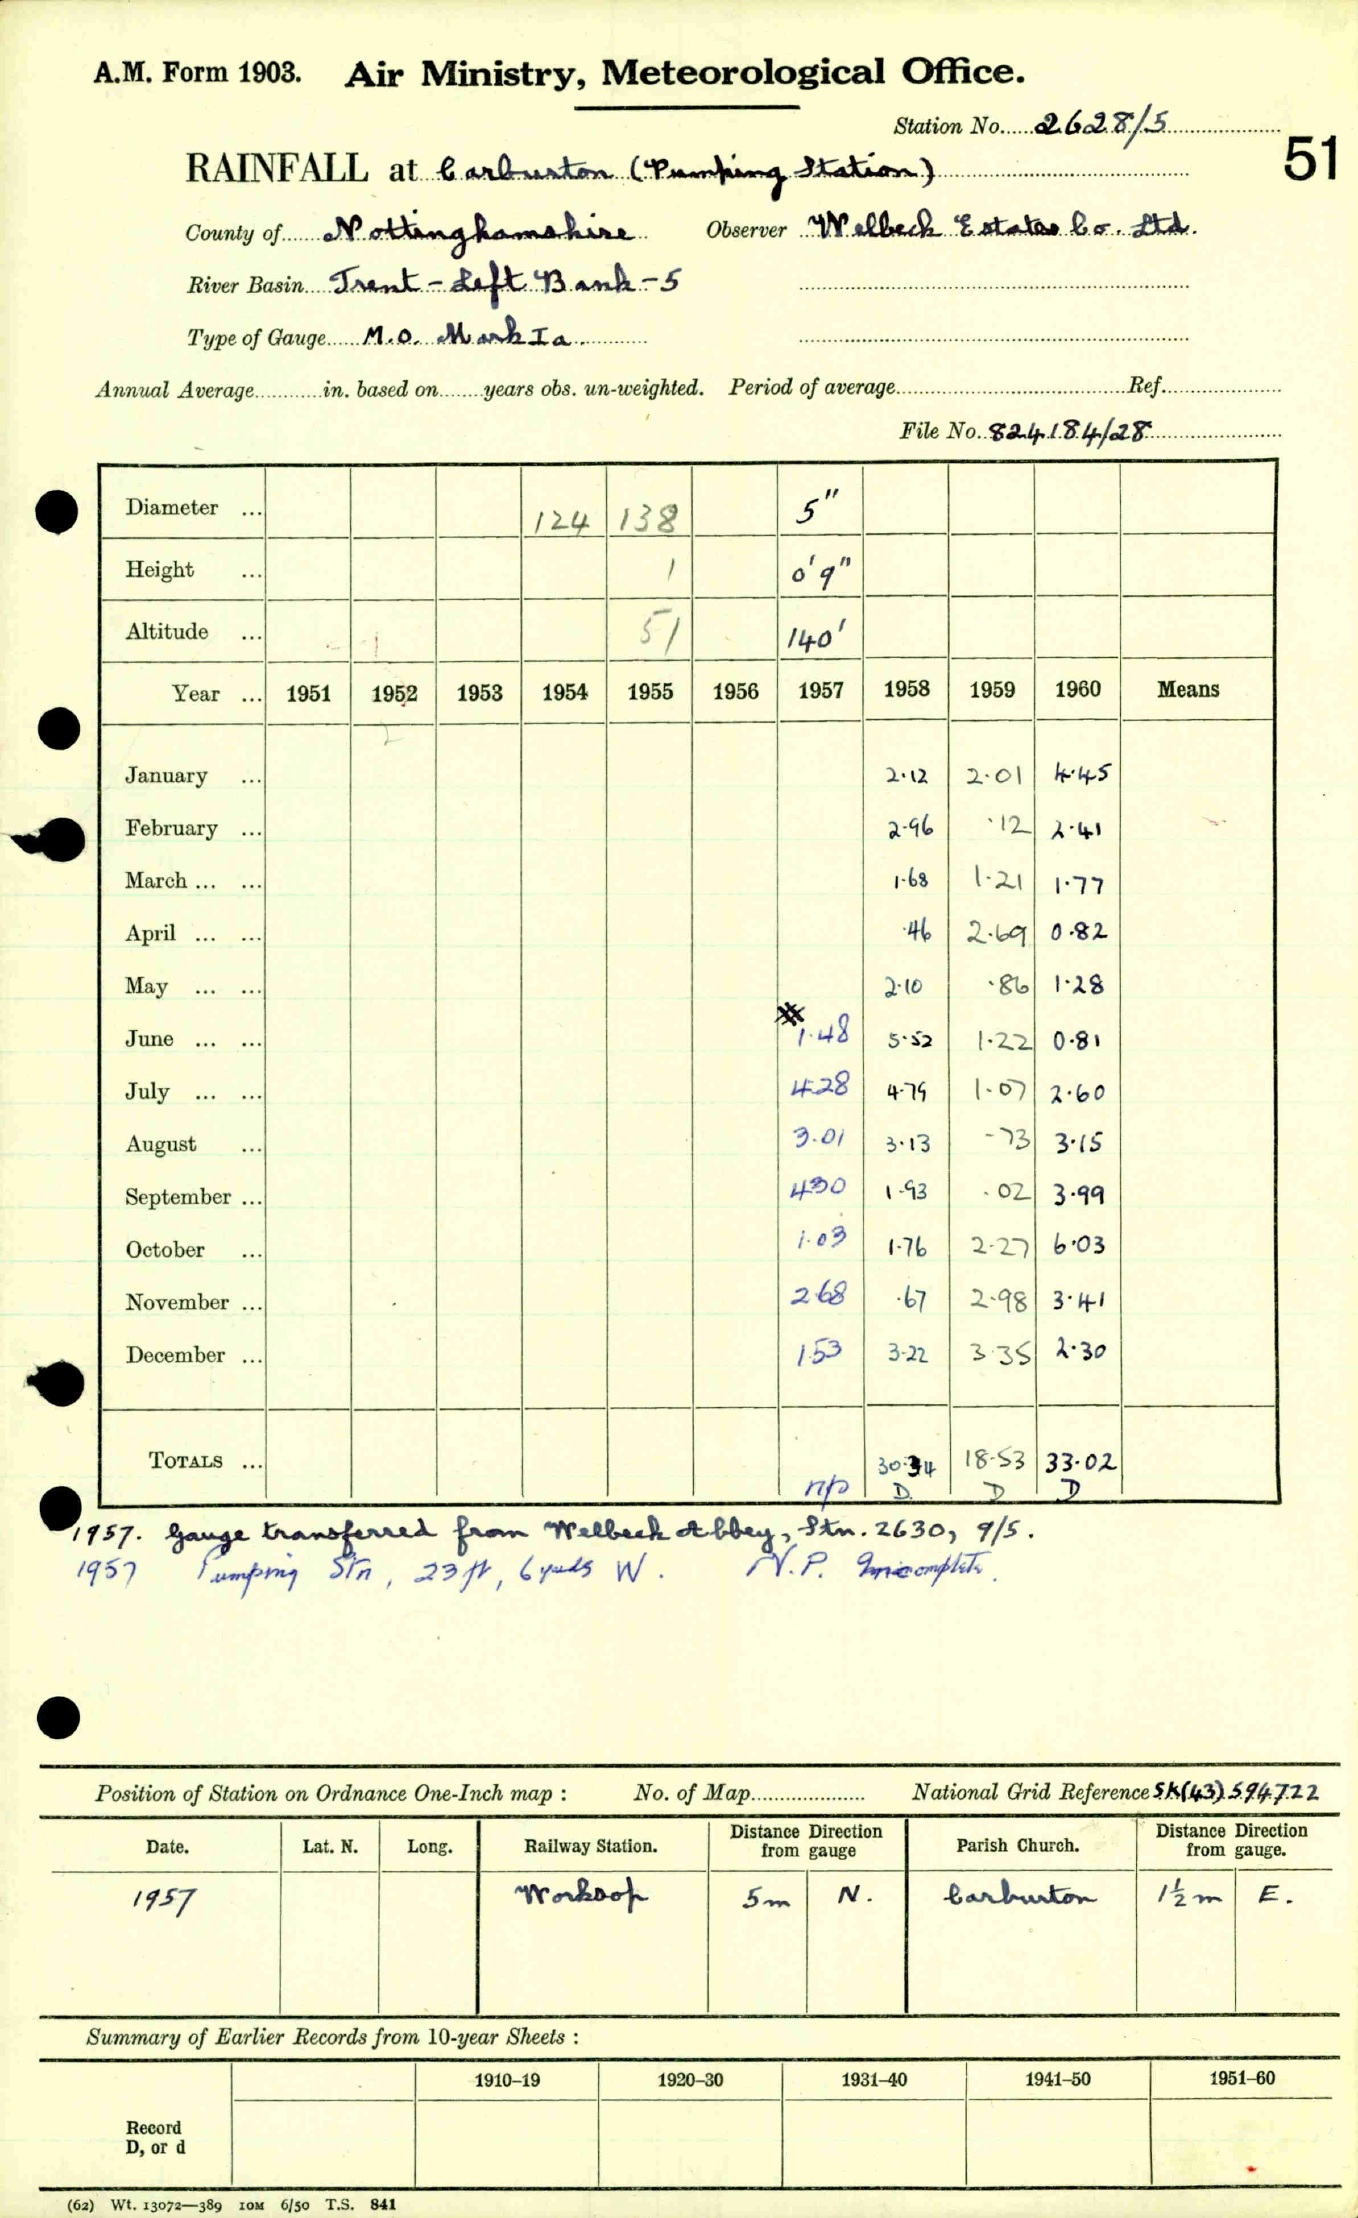 A.M. Form 1903. Air Ministry, Meteorological Office.
Station No. 2628/5
51
RAINFALL at Carburton (Pumping Station)
County of Nottinghamshire Observer Welbeck Estates Co. Ltd.
River Basin Trent - Left Bank - 5
Type of Gauge M.O. Mark Ia.
Annual Average in. based on years obs. un-weighted. Period of average Ref.
File No. 824184/28
Diameter ... 124 138 5"
Height ... 1 0'9"
Altitude ... 51 140'
Year ... 1951 1952 1953 1954 1955 1956 1957 1958 1959 1960 Means
January ... 2.12 2.01 4.45
February ... 2.96 .12 2.41
March ... ... 1.68 1.21 1.77
April ... ... .46 2.69 0.82
May ... ... 2.10 .86 1.28
June ... ... 1.48 5.52 1.22 0.81
July ... ... 4.28 4.79 1.07 2.60
August ... 3.01 3.13 .73 3.15
September ... 4.30 1.93 .02 3.99
October ... 1.03 1.76 2.27 6.03
November ... 2.68 .67 2.98 3.41
December ... 1.53 3.22 3.35 2.30
TOTALS ... 30.34 18.53 33.02
np D D D
1957. Gauge transferred from Welbeck Abbey, Stn. 2630, 9/5.
1957 Pumping Stn, 23 ft, 6 yards W. N.P. Incomplete.
Position of Station on Ordnance One-Inch map : No. of Map National Grid Reference SK(43) 594722
Date. Lat. N. Long. Railway Station. Distance Direction from gauge Parish Church. Distance Direction from gauge.
1957 Worksop 5m N. Carburton 1½m E.
Summary of Earlier Records from 10-year Sheets :
1910–19 1920–30 1931–40 1941–50 1951–60
Record
D, or d
(62) Wt. 13072—389 10M 6/50 T.S. 841